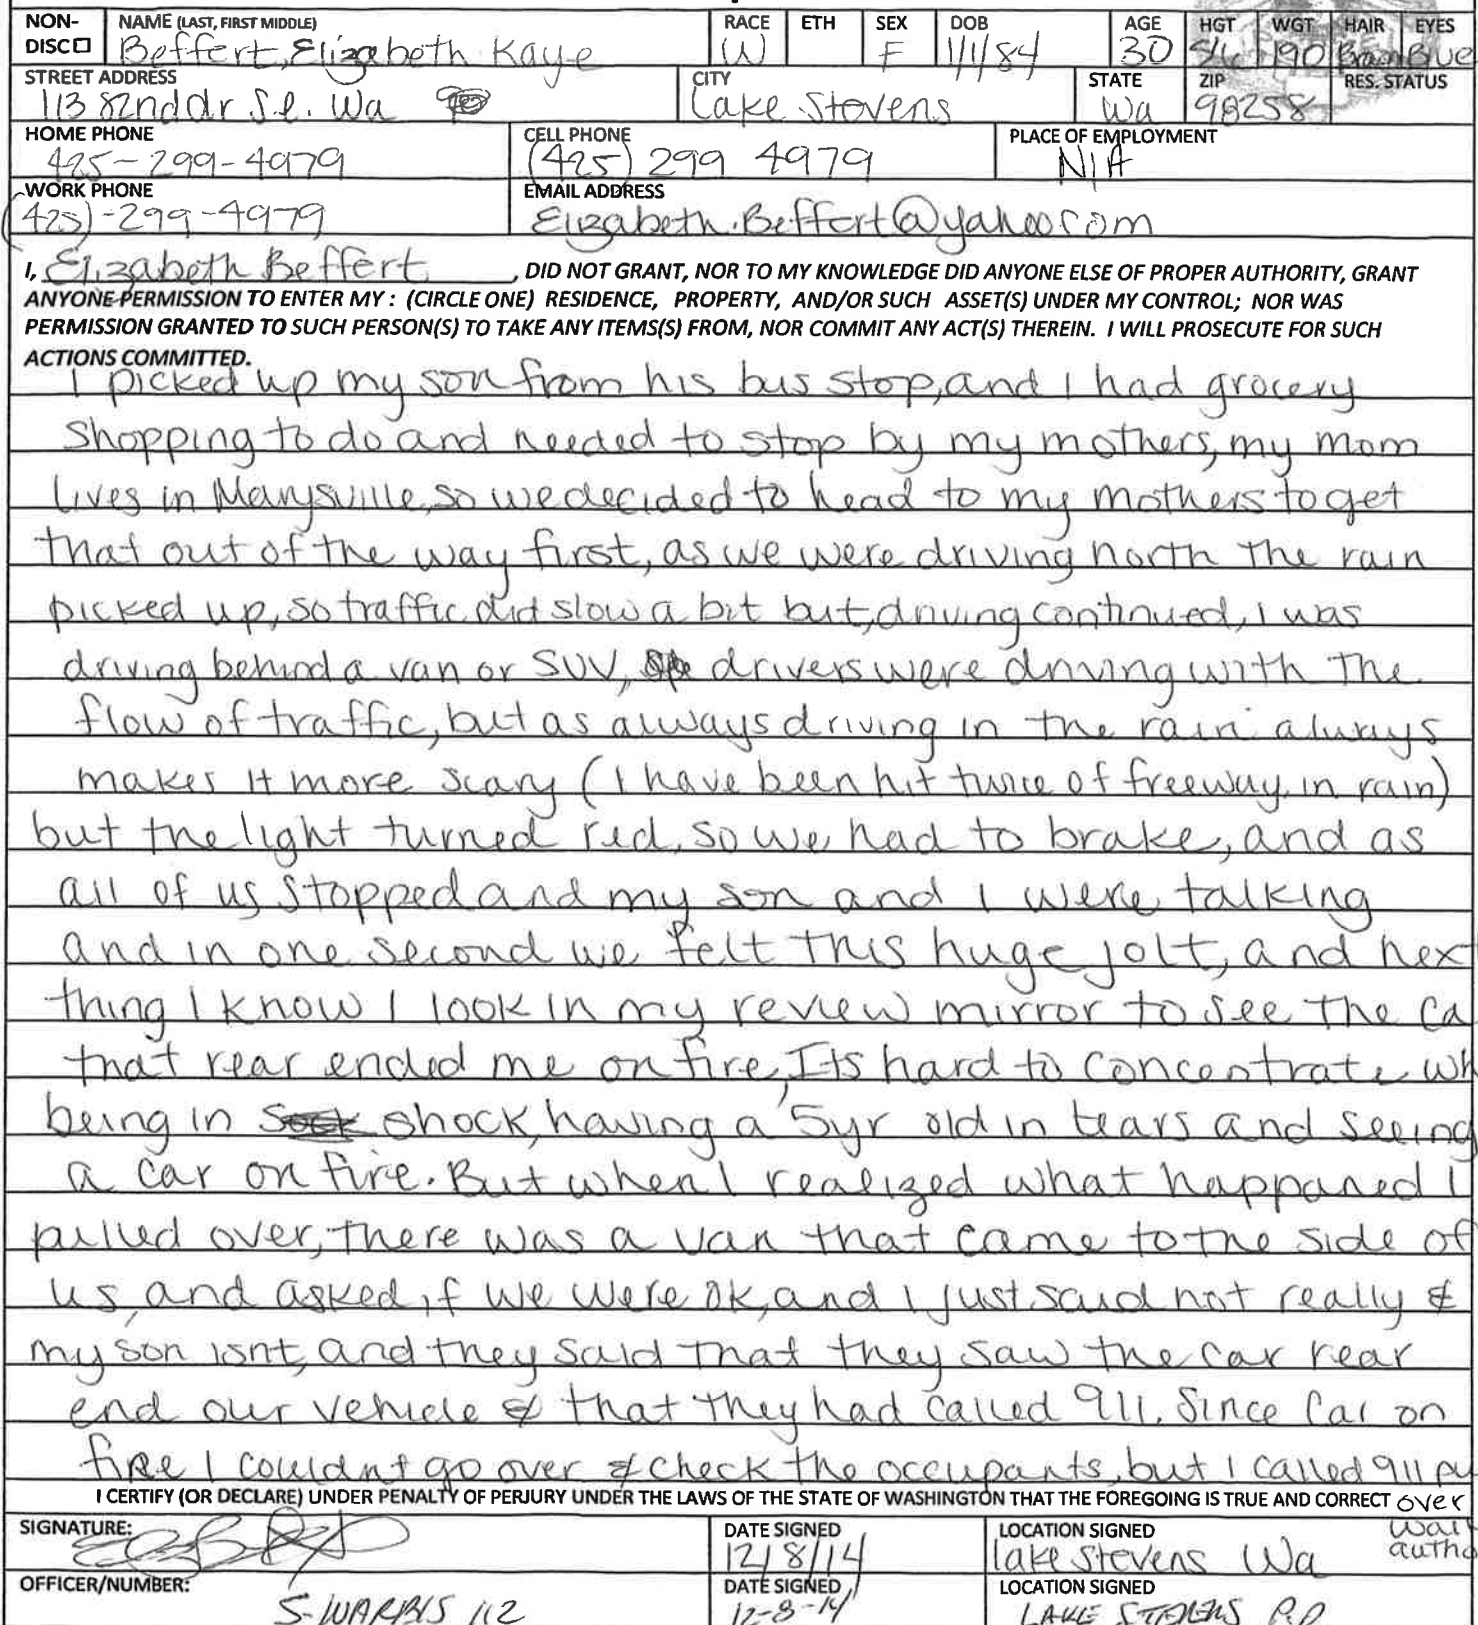 NON-DISC☐ NAME (LAST, FIRST MIDDLE) RACE ETH SEX DOB AGE HGT WGT HAIR EYES
Beffert, Elizabeth Kaye W F 1/1/84 30 5/6 190 Brown Blue
STREET ADDRESS CITY STATE ZIP RES. STATUS
113 82nd dr Se. Wa Lake Stevens Wa 98258
HOME PHONE CELL PHONE PLACE OF EMPLOYMENT
425-299-4979 (425) 299 4979 N/A
WORK PHONE EMAIL ADDRESS
(425)-299-4979 Elizabeth.Beffert@yahoo.com
I, Elizabeth Beffert, DID NOT GRANT, NOR TO MY KNOWLEDGE DID ANYONE ELSE OF PROPER AUTHORITY, GRANT
ANYONE PERMISSION TO ENTER MY : (CIRCLE ONE) RESIDENCE, PROPERTY, AND/OR SUCH ASSET(S) UNDER MY CONTROL; NOR WAS
PERMISSION GRANTED TO SUCH PERSON(S) TO TAKE ANY ITEMS(S) FROM, NOR COMMIT ANY ACT(S) THEREIN. I WILL PROSECUTE FOR SUCH
ACTIONS COMMITTED.
I picked up my son from his bus stop, and I had grocery
shopping to do and needed to stop by my mothers, my mom
lives in Marysville, so we decided to head to my mothers to get
that out of the way first, as we were driving north the rain
picked up, so traffic did slow a bit but, driving continued, I was
driving behind a van or SUV, drivers were driving with the
flow of traffic, but as always driving in the rain always
makes it more scary (I have been hit twice of freeway in rain)
but the light turned red, so we had to brake, and as
all of us stopped and my son and I were talking
and in one second we felt this huge jolt, and next
thing I know I look in my review mirror to see the ca
that rear ended me on fire, Its hard to concentrate wh
being in shock, having a 5yr old in tears and seeing
a car on fire. But when I realized what happaned I
pulled over, there was a van that came to the side of
us, and asked if we were ok, and I just said not really &
my son isnt, and they said that they saw the car rear
end our vehicle & that they had called 911. Since Car on
fire I couldnt go over & check the occupants, but I called 911
I CERTIFY (OR DECLARE) UNDER PENALTY OF PERJURY UNDER THE LAWS OF THE STATE OF WASHINGTON THAT THE FOREGOING IS TRUE AND CORRECT over
SIGNATURE: DATE SIGNED LOCATION SIGNED
12/8/14 lake Stevens Wa
OFFICER/NUMBER: DATE SIGNED LOCATION SIGNED
S. WARBIS 112 12-8-14 LAKE STEVENS P.D.